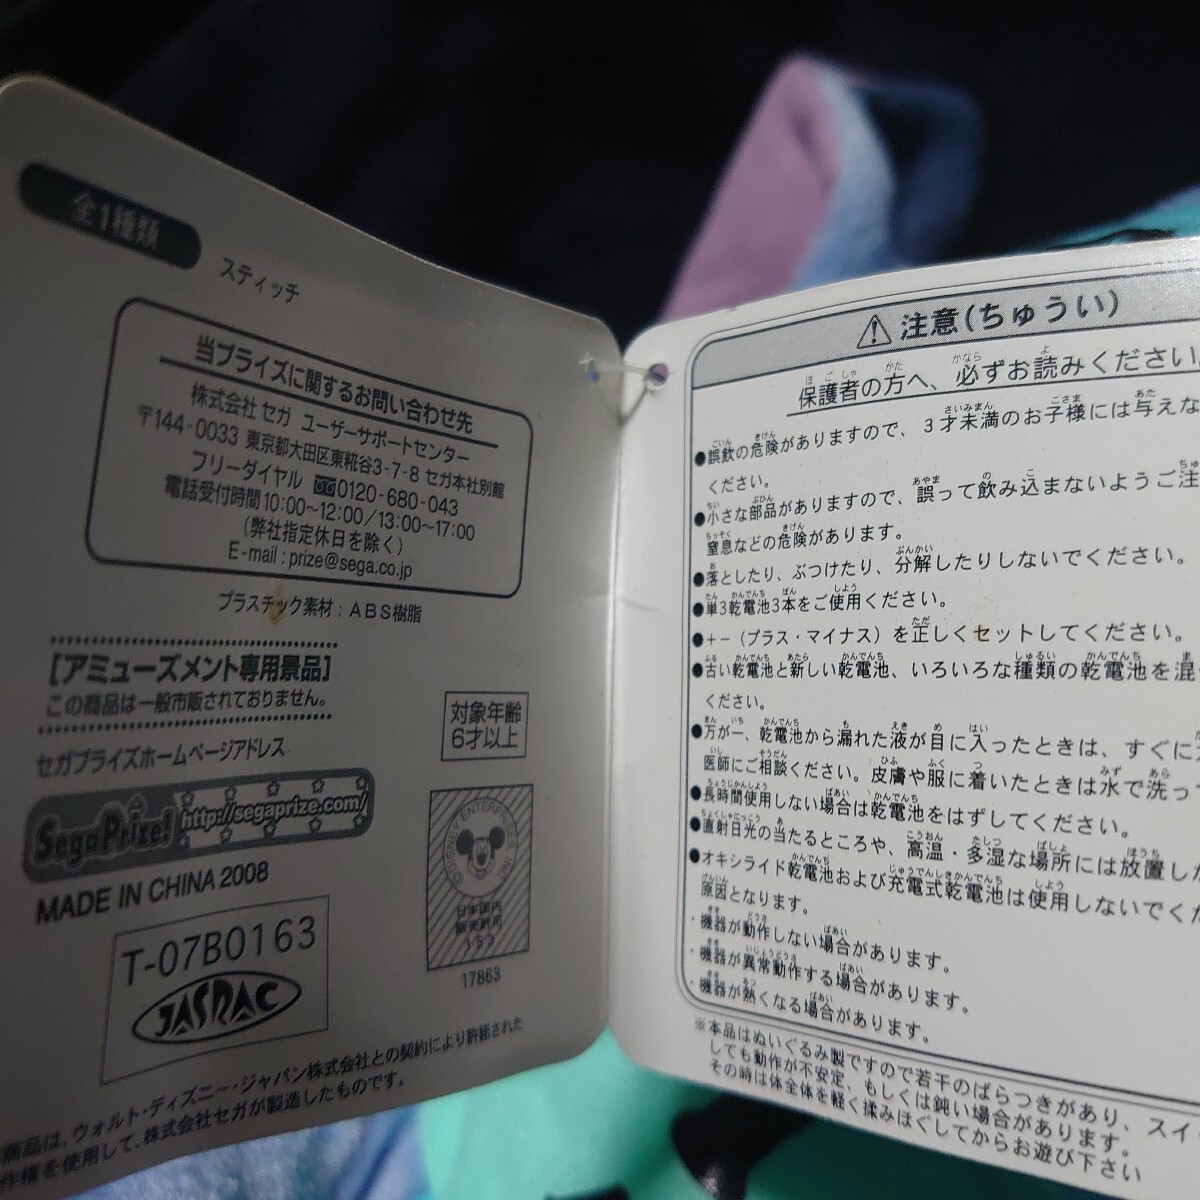 全1種類
スティッチ
当プライズに関するお問い合わせ先
株式会社 セガ ユーザーサポートセンター
〒144-0033 東京都大田区東糀谷3-7-8 セガ本社別館
フリーダイヤル 0120-680-043
電話受付時間 10:00~12:00/13:00~17:00
(弊社指定休日を除く)
E-mail : prize@sega.co.jp
プラスチック素材 : ABS樹脂
[アミューズメント専用景品]
この商品は一般市販されておりません。
セガプライズホームページアドレス
SegaPrize! http://segaprize.com/
MADE IN CHINA 2008
対象年齢
6才以上
T-07B0163
JASRAC
DISNEY ENTERPRISES INC.
日本国内
販売許可
153
17863
商品は、ウォルト・ディズニー・ジャパン株式会社との契約により許諾された
作権を使用して、株式会社セガが製造したものです。
⚠ 注意(ちゅうい)
保護者の方へ、必ずお読みください
●誤飲の危険がありますので、3才未満のお子様には与えな
ください。
●小さな部品がありますので、誤って飲み込まないようご注
窒息などの危険があります。
●落としたり、ぶつけたり、分解したりしないでください。
●単3乾電池3本をご使用ください。
●+-(プラス・マイナス)を正しくセットしてください。
●古い乾電池と新しい乾電池、いろいろな種類の乾電池を混
ください。
●万が一、乾電池から漏れた液が目に入ったときは、すぐに
医師にご相談ください。皮膚や服に着いたときは水で洗って
●長時間使用しない場合は乾電池をはずしてください。
●直射日光の当たるところや、高温・多湿な場所には放置し
●オキシライド乾電池および充電式乾電池は使用しないでく
原因となります。
・機器が動作しない場合があります。
・機器が異常動作する場合があります。
・機器が熱くなる場合があります。
※本品はぬいぐるみ製ですので若干のばらつきがあり、スイ
しても動作が不安定、もしくは鈍い場合があります。
その時は体全体を軽く揉みほぐしてからお遊び下さい